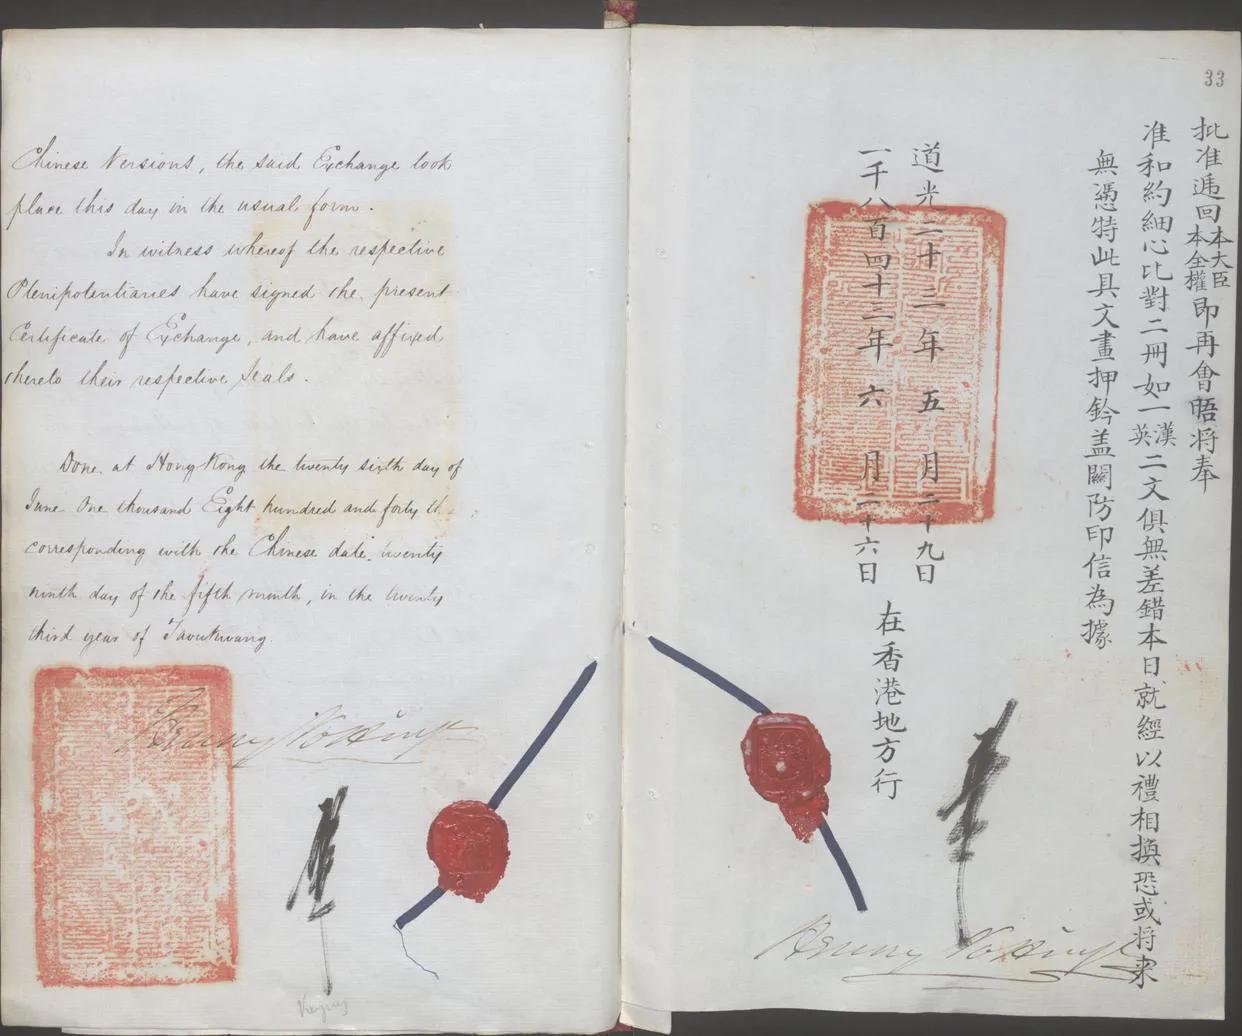 Chinese Versions, the said Exchange took
place this day in the usual form.
In witness whereof the respective
Plenipotentiaries have signed the present
Certificate of Exchange, and have affixed
thereto their respective Seals.
Done at Hong Kong the twenty sixth day of
June One thousand Eight hundred and forty th
corresponding with the Chinese date, twenty
ninth day of the fifth month, in the twenty
third year of Taoukwang.
Henry Pottinger
Keying
33
批准遞回本大臣本全權即再會晤將奉
准和約細心比對二冊如一漢英二文俱無差錯本日就經以禮相換恐或將來
無憑特此具文畫押鈐盖關防印信為據
道光二十三年五月二十九日
一千八百四十三年六月二十六日
在香港地方行
Henry Pottinger